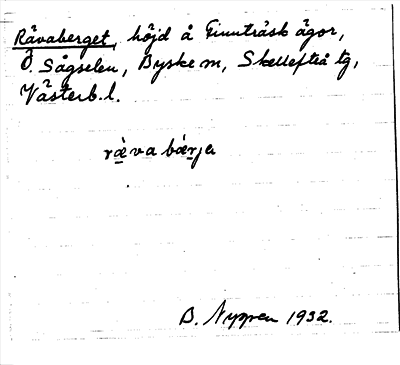 Rävaberget, höjd å Finnträsk ägor,
Ö. Sågselen, Byske sn, Skellefteå tg,
Västerb. l.
ræ̀va bærja
B. Nyppen 1932.